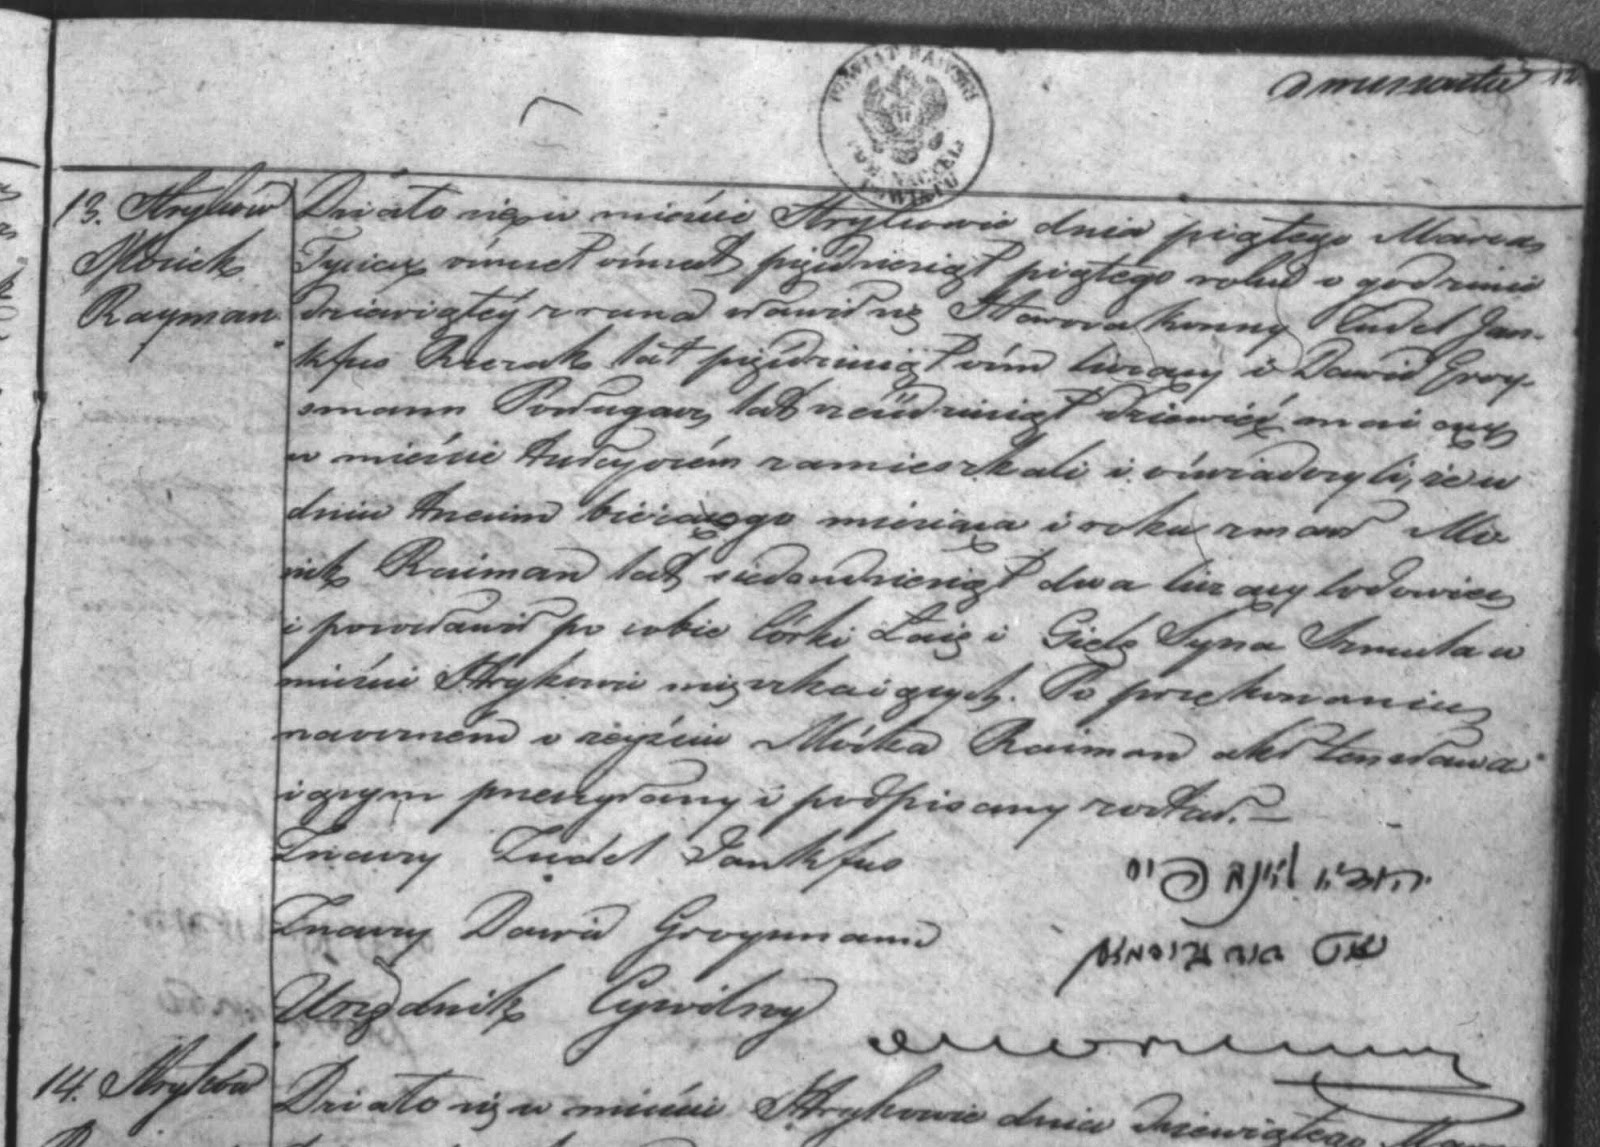 dwunasta 12
POWIAT RAWSKI
NACZEL. POWIATU
13. Stryków
Mosiek
Rayman
Działo się w mieście Strykowie dnia piątego Marca
Tysiąc ośmset ośmset pięćdziesiąt piątego roku o godzinie
dziewiątey z rana stawili się Starozakonny Judel Jan-
kfus lat pięćdziesiąt ośm liczący i Dawid Groy-
smann lat dziewięć maiący
w mieście tuteyszém zamieszkali i oświadczyli, że w
dniu trzecim bieżącego miesiąca i roku zmarł Mo
siek Raiman lat siedmdziesiąt dwa liczący wdowiec
i pozostawił po sobie Córki Łaię i Gielę Syna Szmula w
mieście Strykowie mieszkaiących. Po przekonaniu
naocznem o zeyściu Mośka Raiman akt ten stawa
iącym przeczytany i podpisany został.
Znawy Judel Jankfus
Znawy Dawid Groysmann
Urzędnik Cywilny
14. Stryków
Działo się w mieście Strykowie dnia dziewiątego